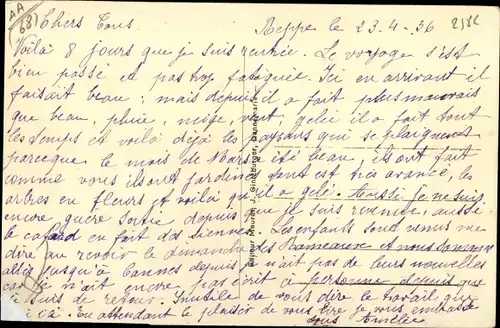 AA
68) Chers Tous Reppe le 23-4-36
Voilà 8 jours que je suis rentrée. Le voyage s'est
bien passé et pas trop fatiguée. Ici en arrivant il
faisait beau, mais depuis il a fait plus mauvais
que beau, pluie, neige, vent, gelée il a fait tout
les temps et voilà déjà les paysans qui se plaignent
parceque le mois de Mars été beau, ils ont fait
comme vous ils ont jardiné tout est très avancé, les
arbres en fleurs et voilà qu'il a gelé. Aussi je ne suis
encore guère sortie depuis que je suis revenue, aussi
le cafard en fait des siennes. Les enfants sont venus me
dire au revoir le dimanche des Rameaux et nous sommes
allés jusqu'à Cannes depuis n'ait pas de leurs nouvelles
car je n'ait encore pas écrit à personne depuis que
je suis de retour. Inutile de vous dire le travail que
j'ai. En attendant le plaisir de vous lire je vous embrasse
tous Amélie